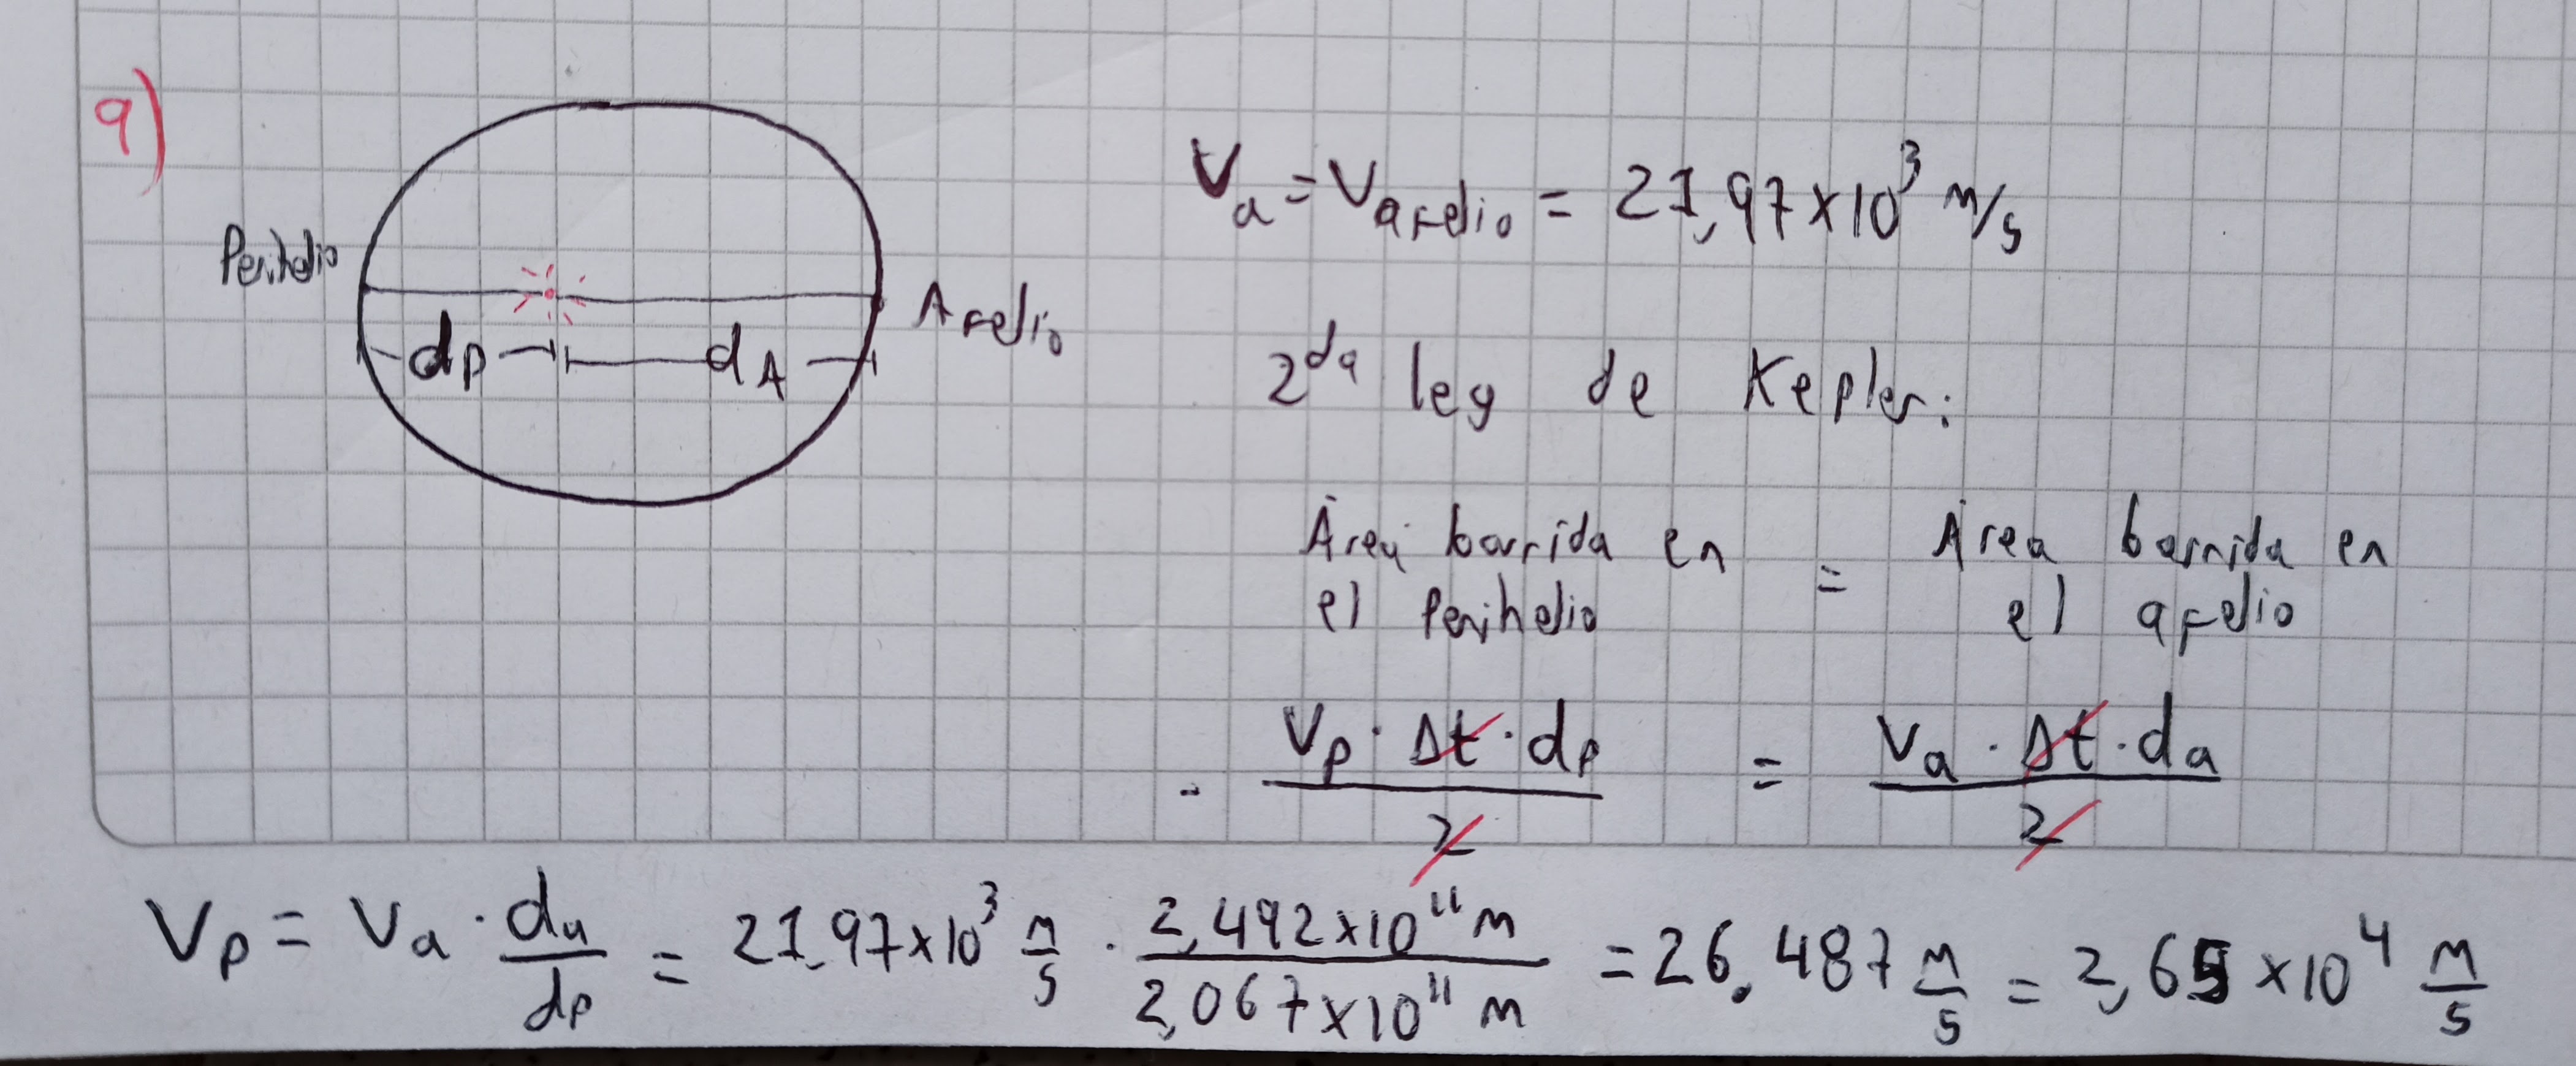 9)
Perihelio
Afelio
dp
dA
Va = Vafelio = 21,97×10³ m/s
2da ley de Kepler:
Área barrida en el Perihelio = Área barrida en el afelio
Vp · Δt · dp / 2 = Va · Δt · da / 2
Vp = Va · da/dp = 21,97×10³ m/s · 2,492×10¹¹ m / 2,067×10¹¹ m = 26.487 m/s = 2,65×10⁴ m/s